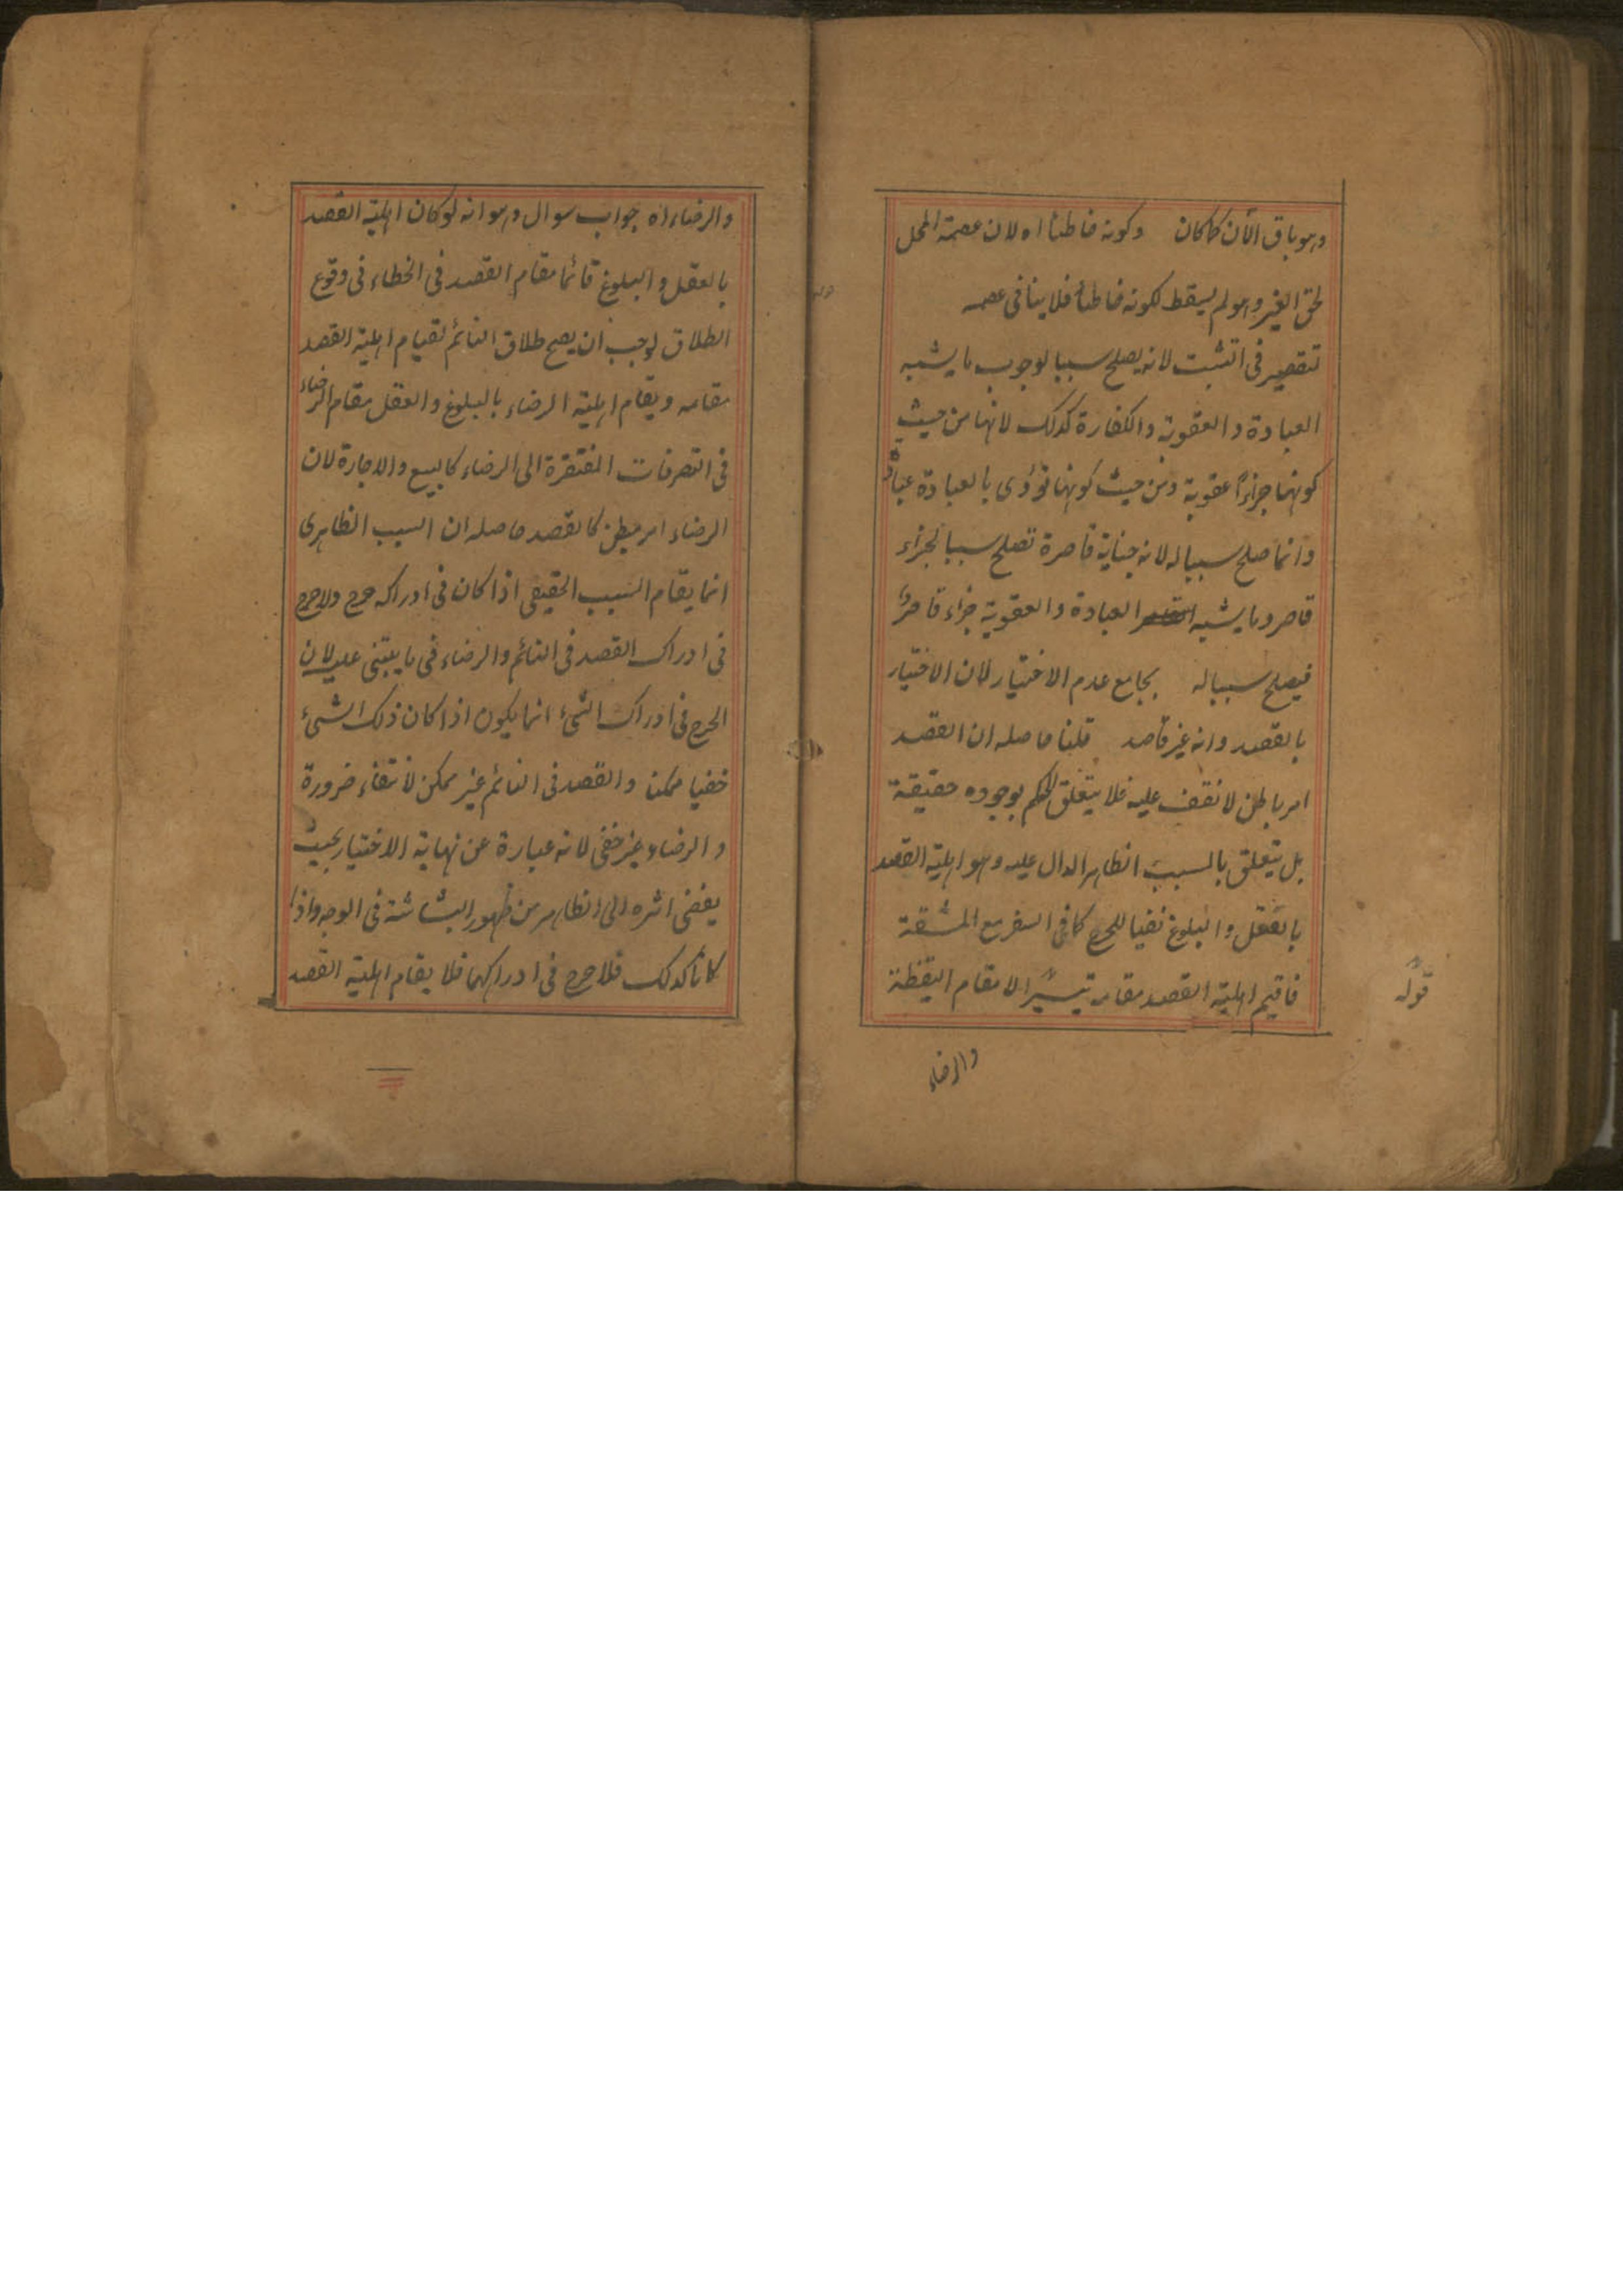 وهو باق الآن كما كان وكونه خاطئا اه لان عصمة المحل
لحق الغير وهو لم يسقط لكونه خاطئا فلا ينافى عصمه
تقصير فى التثبت لانه يصلح سببا لوجوب ما يشبه
العبادة والعقوبة والكفارة كذلك لانها من حيث
كونها جزاءً عقوبة ومن حيث كونها تؤدى بالعبادة عبادة
وانما صلح سببا له لانه جناية قاصرة تصلح سببا لجزاء
قاصر وما يشبه العبادة والعقوبة جزاء قاصر
فيصلح سببا له بجامع عدم الاختيار لان الاختيار
بالقصد وانه غير قاصد قلنا حاصله ان القصد
امر باطن لا نقف عليه فلا يتعلق الحكم بوجوده حقيقة
بل يتعلق بالسبب الظاهر الدال عليه وهو اهلية القصد
بالعقل والبلوغ نفيا للحرج كما فى السفر مع المشقة
فاقيم اهلية القصد مقامه تيسيرا لا مقام اليقظة
قوله
والرضاء
والرضاء اه جواب سوال وهو انه لو كان اهلية القصد
بالعقل والبلوغ قائما مقام القصد فى الخطاء فى وقوع
الطلاق لوجب ان يصح طلاق النائم لقيام اهلية القصد
مقامه ويقام اهلية الرضاء بالبلوغ والعقل مقام الرضاء
فى التصرفات المفتقرة الى الرضاء كالبيع والاجارة لان
الرضاء امر مبطن كالقصد حاصله ان السبب الظاهرى
انما يقام السبب الحقيقى اذا كان فى ادراكه حرج ولا حرج
فى ادراك القصد فى النائم والرضاء فى ما يبتنى عليه لان
الحرج فى ادراك الشئ انما يكون اذا كان ذلك الشئ
خفيا ممكنا والقصد فى النائم غير ممكن لانتفاء ضرورة
والرضاء غير خفى لانه عبارة عن نهاية الاختيار بحيث
يفضى اثره الى الظاهر من ظهور البشاشة فى الوجه واذا
كانا كذلك فلا حرج فى ادراكهما فلا يقام اهلية القصد